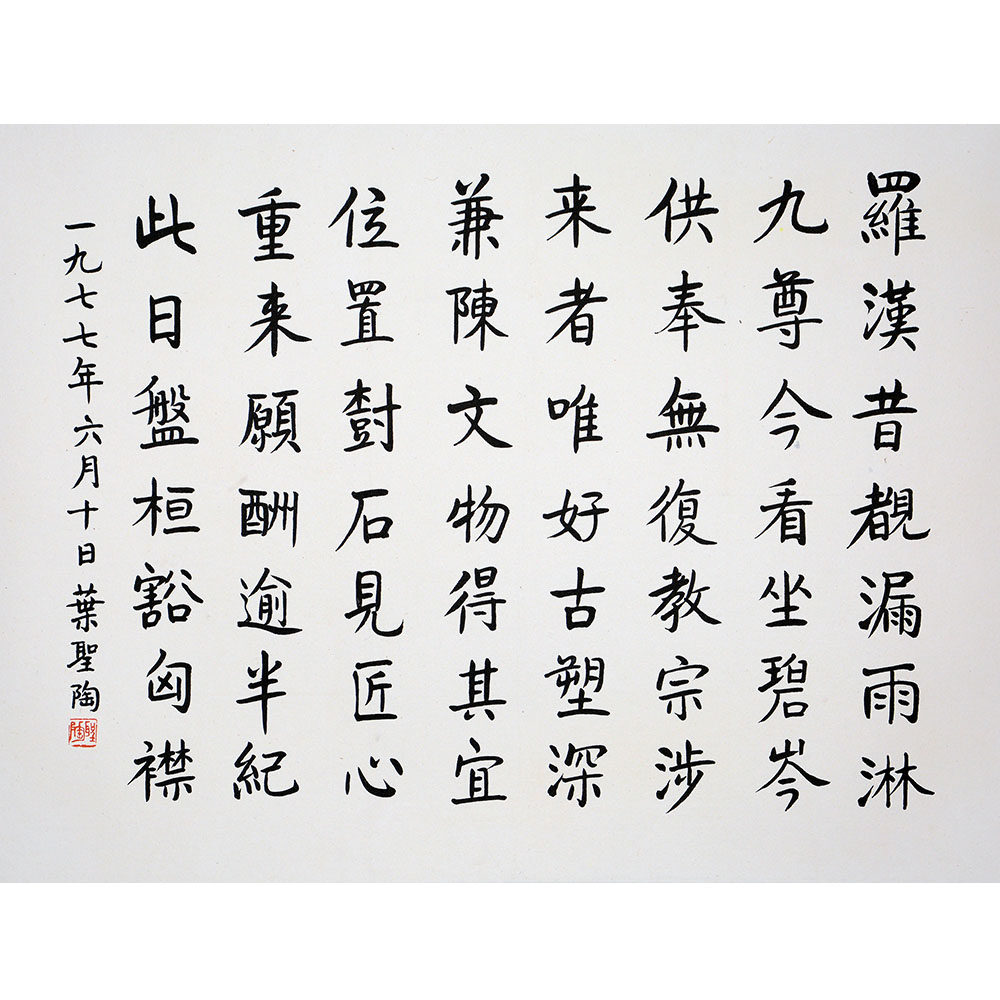 羅漢昔覩漏雨淋
九尊今看坐碧岑
供奉無復教宗涉
来者唯好古塑深
兼陳文物得其宜
位置樹石見匠心
重来願酬逾半紀
此日盤桓豁匈襟
一九七七年六月十日葉聖陶
聖陶